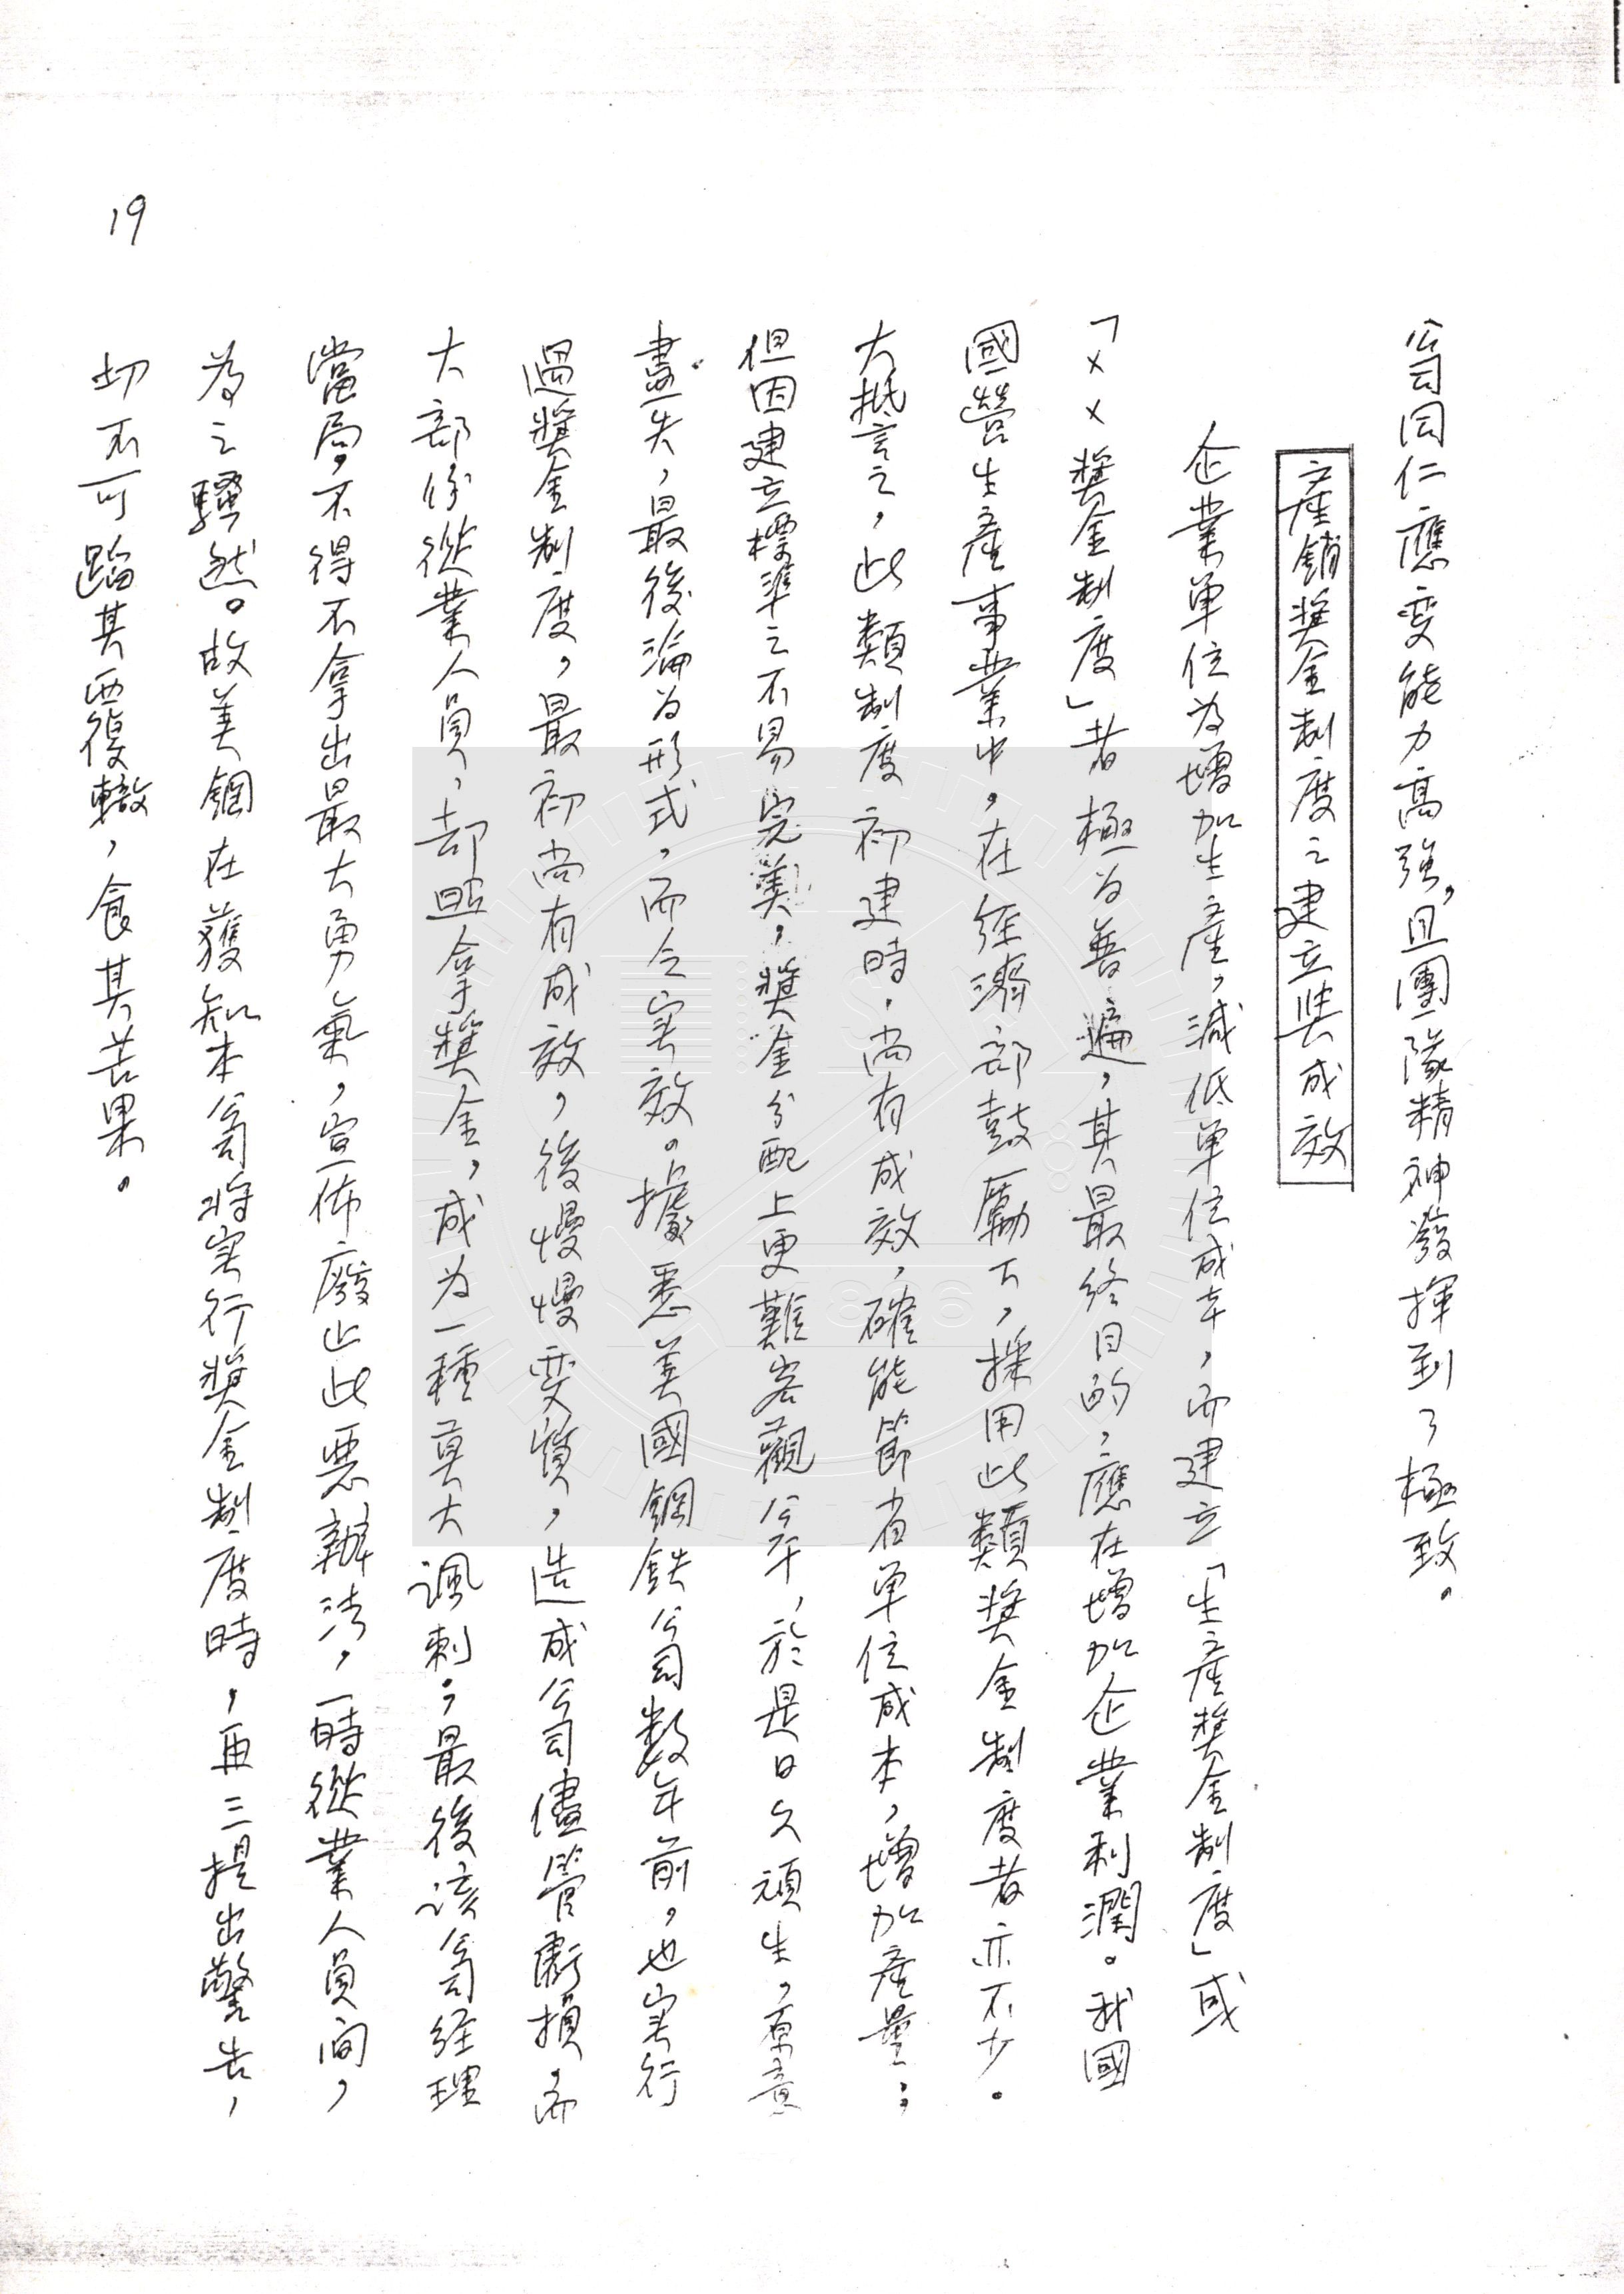 公司同仁應變能力高強，且團隊精神發揮到了極致。
產銷獎金制度之建立與成效
企業單位為增加生產，減低單位成本，而建立「生產獎金制度」或
「××獎金制度」者極為普遍，其最終目的，應在增加企業利潤。我國
國營生產事業中，在經濟部鼓勵下，採用此類獎金制度者亦不少。
大抵言之，此類制度初建時，尚有成效，確能節省單位成本，增加產量；
但因建立標準之不易完美，獎金分配上更難客觀公平，於是日久頑生，原意
盡失，最後淪為形式，而令实效。據悉美國鋼鉄公司数年前，也实行
過獎金制度，最初尚有成效，後慢慢变質，造成公司儘管虧損，而
大部份從業人員，却照拿獎金，成为一種莫大諷刺，最後該公司经理
當局，不得不拿出最大勇氣，宣佈廢止此惡辦法，一時從業人員间，
为之騷然。故美鋼在獲知本公司将实行獎金制度時，再三提出警告，
切不可蹈其覆轍，食其苦果。
19